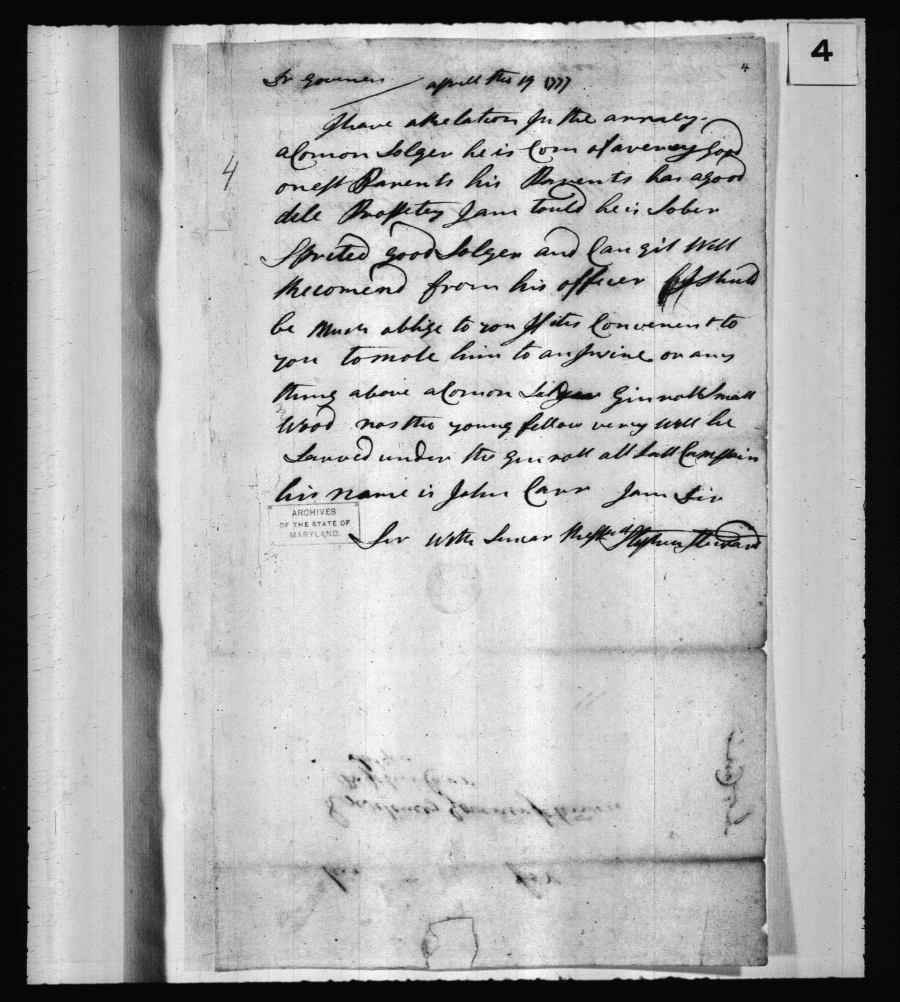 4
4
Sr Govener aprell the 19 1777
I have a Relation In the armey.
a Comon Solger he is Com of a verey Good
onest Parents his Parents has a good
dele Propetey I am tould he is Sober
Sprited good Solger and Can git Well
Recomend from his officer I Shuld
be Much oblige to you If itis Convenent to
you to mate him to an Insine or any
thing above a Comon Solger Ginnoll Small
Wood nos the young fellow verey Well he
Sarved under the Ginnoll all Last Campain
his name is John Carr I am Sir
ARCHIVES
OF THE STATE OF
MARYLAND.
Sir With Sincar Respect Stephen Steward
4